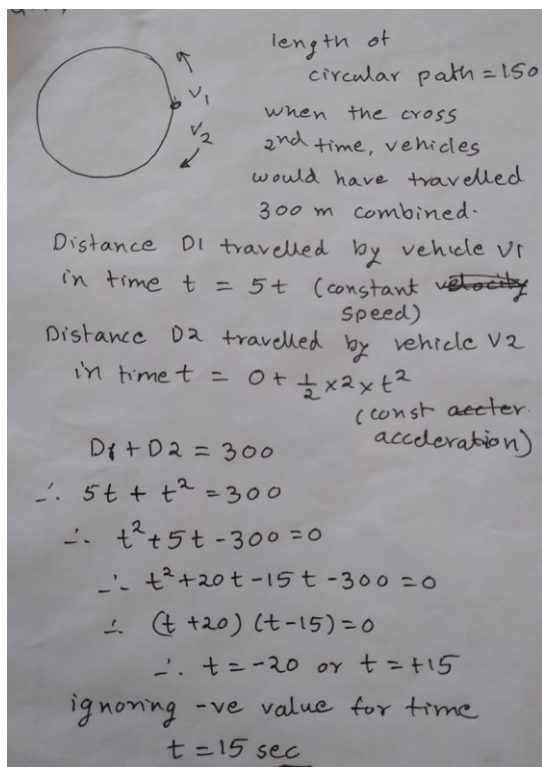 length of
circular path = 150
V1
when the cross
V2
2nd time, vehicles
would have travelled
300 m combined.
Distance D1 travelled by vehicle V1
in time t = 5t (constant velocity
speed)
Distance D2 travelled by vehicle V2
in time t = 0 + 1/2 x 2 x t²
(const accter.
acceleration)
D1 + D2 = 300
∴ 5t + t² = 300
∴ t² + 5t - 300 = 0
∴ t² + 20t - 15t - 300 = 0
∴ (t + 20) (t - 15) = 0
∴ t = -20 or t = +15
ignoring -ve value for time
t = 15 sec